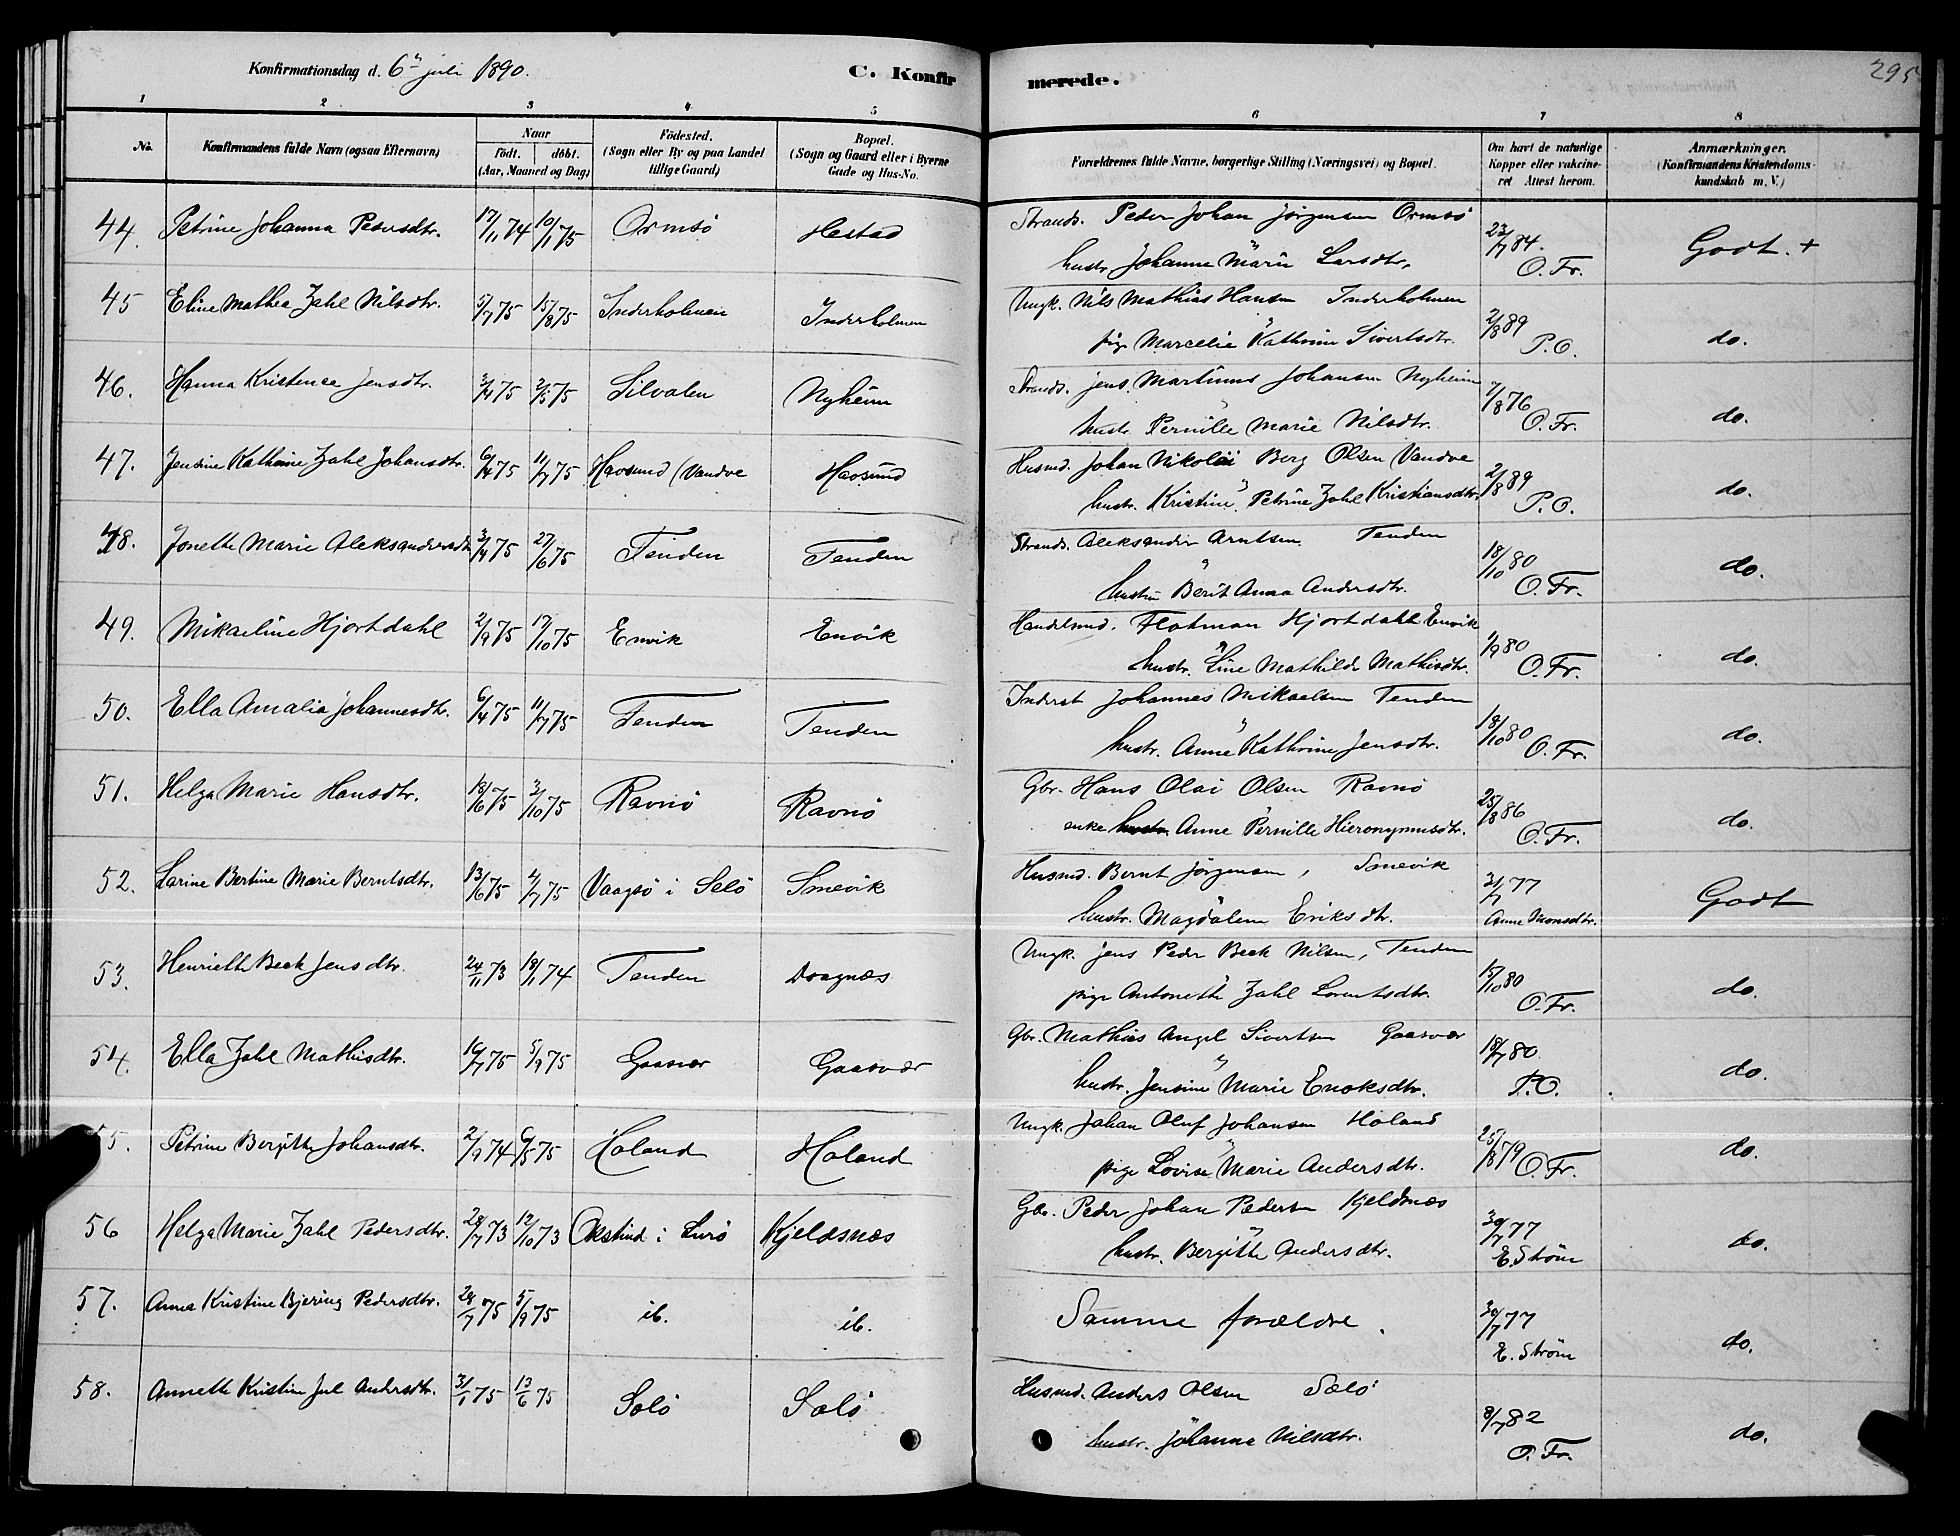 Konfirmationsdag d. 6te juli 1890. C. Konfir merede. 295
1 2 3 4 5 6 7 8
No. Konfirmandens fulde Navn (ogsaa Efternavn) Naar født. døbt. (Aar, Maaned og Dag) Födested. (Sogn eller By og paa Landet tillige Gaard) Bopæl. (Sogn og Gaard eller i Byerne Gade og Hus-No. Forældrenes fulde Navne, borgerlige Stilling (Næringsvei) og Bopæl. Om havt de naturlige Kopper eller vakcineret Attest herom. Anmærkninger. (Konfirmandens Kristendomskundskab m. V.)
44. Petrine Johanna Pedersdtr. 17/11 74 10/1 75 Ormsö Hestad Strands. Peder Johan Jörgensen Ormsö
hustr. Johanna Marie Larsdtr. 23/7 84. O. Fr. Godt. +
45 Eline Mathea Zahl Nilsdtr. 5/7 75 15/8 75 Inderholmen Inderholmen Ungk. Nils Mathias Hansen Inderholmen
pige Marcelie Kathrine Sivertsdtr. 2/8 89 P.O. do.
46. Hanna Kristence Jensdtr. 3/4 75 2/5 75 Silvalen Nyheim Strands. Jens Martinus Johansen Nyheim
hustr. Pernille Marie Nilsdtr. 7/8 76 O. Fr. do.
47. Jensine Kathrine Zahl Johansdtr. 6/4 75 11/7 75 Havsund (Vandve Havsund Husmd. Johan Nikolai Berg Olsen Vandve
hustr. Kristine Petrine Zahl Kristiansdtr. 2/8 89 P.O. do.
48. Jonette Marie Aleksandersdtr 3/4 75 27/6 75 Tenden Tenden Strands. Aleksander Arntsen Tenden
hustru Berit Anna Andersdtr. 18/10 80 O. Fr. do.
49. Mikaeline Hjortdahl 2/9 75 17/10 75 Envik Envik Handelsmd. Flohman Hjortdahl Envik
hustr. Line Mathilde Mathisdtr. 1/9 80 O. Fr. do.
50. Ella Amalia Johannesdtr. 6/4 75 11/7 75 Tenden Tenden Inderst Johannes Mikaelsen Tenden
hustr. Anne Kathrine Jensdtr. 18/10 80 O. Fr. do.
51. Helga Marie Hansdtr. 18/6 75 3/10 75 Ravnö Ravnö Gbr. Hans Olai Olsen Ravnö
enke hustr. Anne Pernille Hieronymusdtr. 25/8 86 O. Fr. do.
52. Larine Bertine Marie Berntsdtr. 13/6 75 4/7 75 Vaagsö i Selö Smevik Husmd. Bernt Jörgensen, Smevik
hustr. Magdalena Eriksdtr. 31/7 77 Anne Monsdtr. Godt
53. Henriette Beck Jensdtr. 24/11 73 18/1 74 Tenden Dragnæs Ungk. Jens Peder Beck Nilsen, Tenden
pige Antonette Zahl Lorentsdtr. 15/10 80 O. Fr. do.
54. Ella Zahl Mathisdtr. 16/7 75 5/9 75 Gaasvær Gaasvær Gbr. Mathias Angel Sivertsen Gaasvær
hustr. Jensine Marie Enoksdtr. 18/7 80 P.O. do.
55. Petrine Bergitte Johansdtr. 2/9 74 6/5 75 Høland Høland Ungk. Johan Oluf Johansen Høland
pige Lovise Marie Andersdtr. 25/8 79 O. Fr. do.
56 Helga Marie Zahl Pedersdtr. 28/7 73 12/10 73 Okstind i Lurö Kjeldsnæs Gbr. Peder Johan Pedersen Kjeldsnæs
hustr. Bergitte Andersdtr. 30/7 77 E. Ström do.
57. Anna Kristine Bjering Pedersdtr. 28/7 75 5/9 75 ib. ib. Samme forældre. 30/7 77 E. Ström do.
58. Annette Kristine Jul Andersdtr. 31/1 75 13/6 75 Solö Solö Husmd. Anders Olsen Solö
hustr. Johanna Nilsdtr. 8/7 82 O. Fr. do.